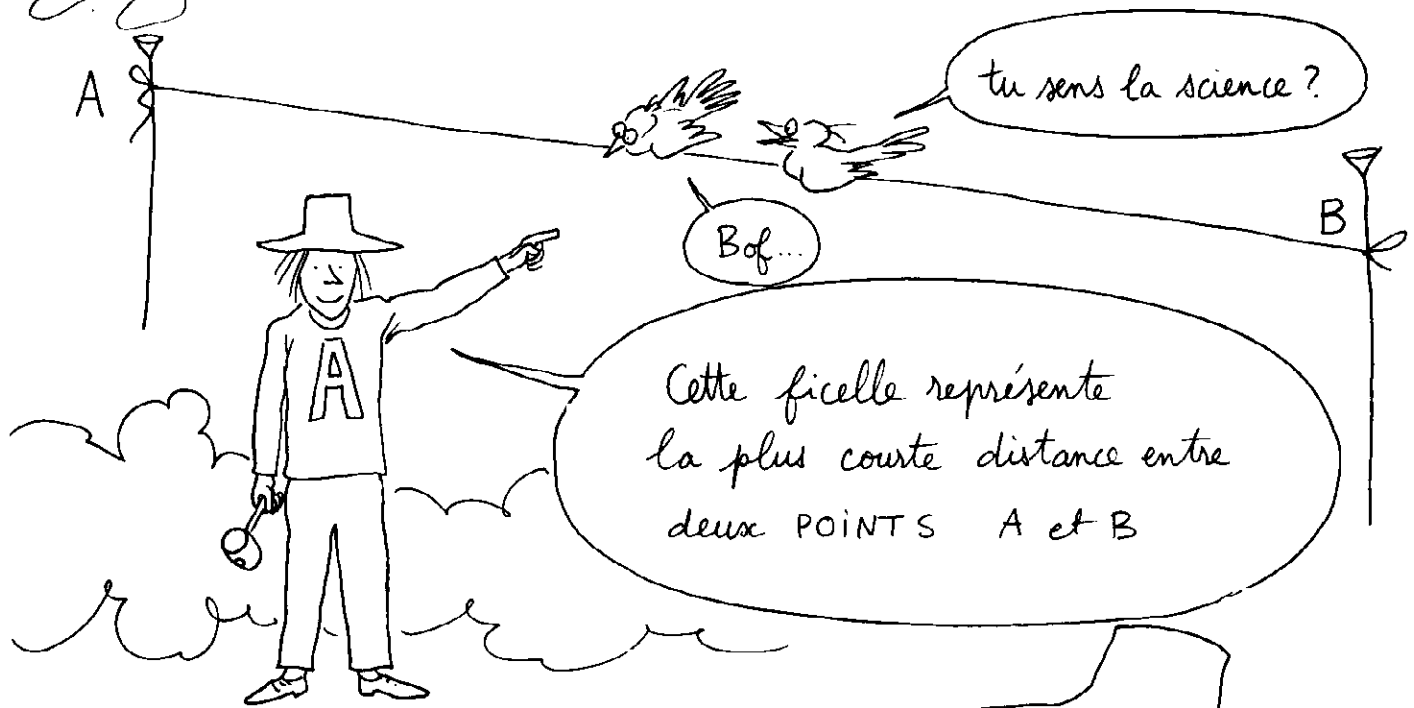 A
tu sens la science ?
B
Bof...
A
Cette ficelle représente
la plus courte distance entre
deux POINTS A et B